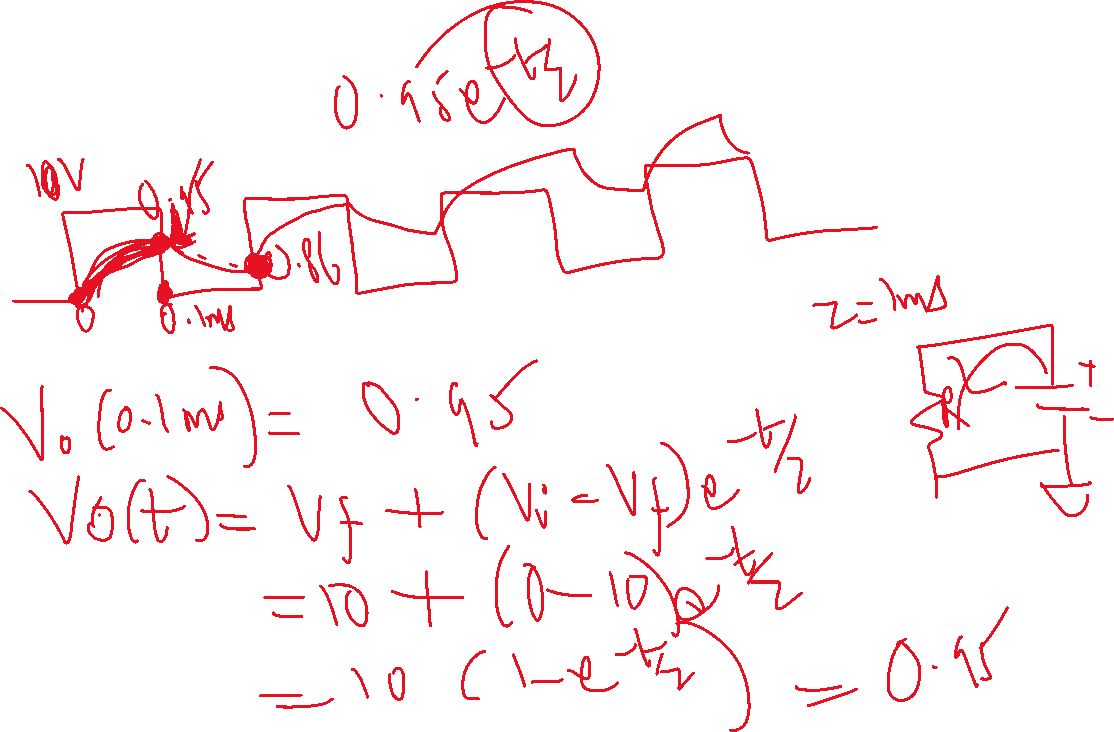 0.95e^-t/τ
10V
0.95
0.86
0
0.1ms
τ=1ms
R
+
-
V₀(0.1ms)= 0.95
V₀(t)= Vf + (Vi - Vf)e^-t/τ
=10 + (0-10)e^-t/τ
=10 (1-e^-t/τ) = 0.95